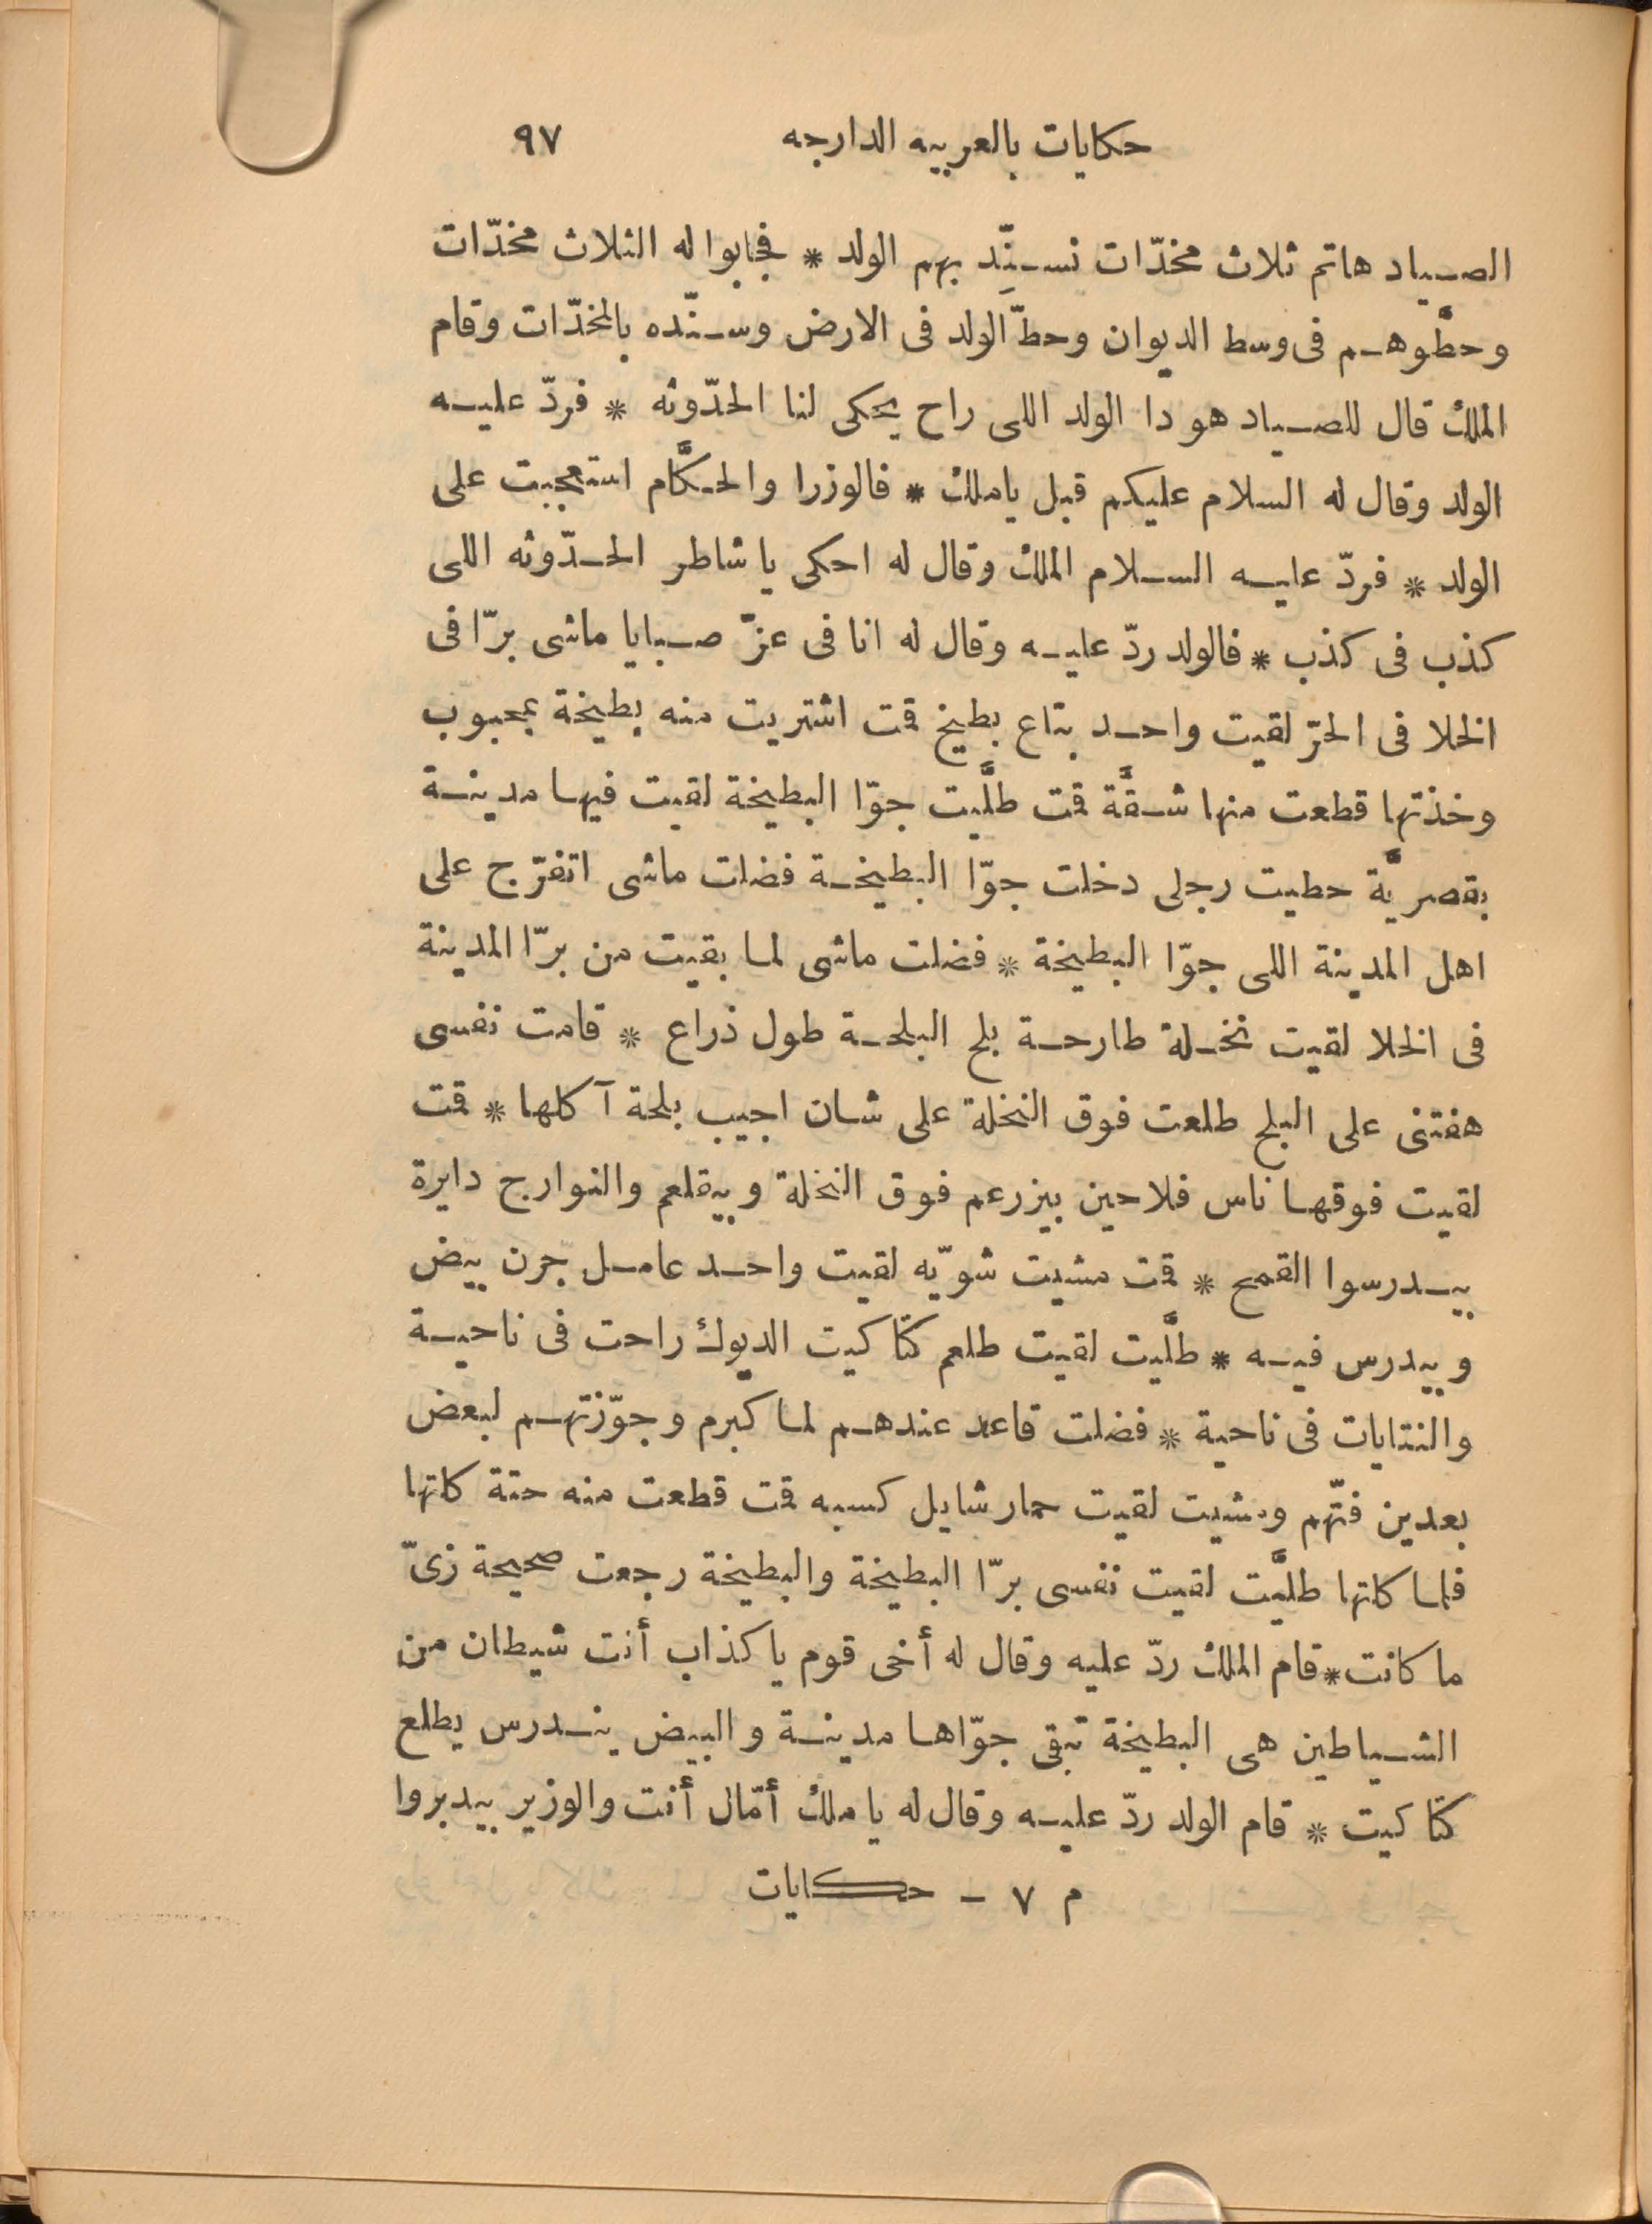 حكايات بالعربيه الدارجه ٩٧
الصياد هاتم ثلاث مخدّات نسنِّد بهم الولد * فجابوا له الثلاث مخدّات
وحطّوهم فى وسط الديوان وحطّ الولد فى الارض وسنّده بالمخدّات وقام
الملك قال للصياد هو دا الولد اللى راح يحكى لنا الحدّوثه * فردّ عليه
الولد وقال له السلام عليكم قبل ياملك * فالوزرا والحكَّام استعجبت على
الولد * فردّ عليه السلام الملك وقال له احكى يا شاطر الحدّوثه اللى
كذب فى كذب * فالولد ردّ عليه وقال له انا فى عزّ صبايا ماشى برّا فى
الخلا فى الحرّ لقيت واحد بتاع بطيخ قمت اشتريت منه بطيخة بمحبوب
وخذتها قطعت منها شقَّة قمت طلَّيت جوّا البطيخة لقيت فيها مدينة
بقصريَّة حطيت رجلى دخلت جوّا البطيخة فضلت ماشى اتفرّج على
اهل المدينة اللى جوّا البطيخة * فضلت ماشى لما بقيت من برّا المدينة
فى الخلا لقيت نخلة طارحة بلح البلحة طول ذراع * قامت نفسى
هفتنى على البلح طلعت فوق النخلة على شان اجيب بلحة آكلها * قمت
لقيت فوقها ناس فلاحين بيزرعم فوق النخلة وبيقلعم والنوارج دايرة
بيدرسوا القمح * قمت مشيت شويّه لقيت واحد عامل جرن بيض
وبيدرس فيه * طلَّيت لقيت طلعم كتاكيت الديوك راحت فى ناحية
والنتايات فى ناحية * فضلت قاعد عندهم لما كبرم وجوّزتهم لبعض
بعدين فتّهم ومشيت لقيت حمار شايل كسبه قمت قطعت منه حتة كلتها
فلما كلتها طلَّيت لقيت نفسى برّا البطيخة والبطيخة رجعت صحيحة زىّ
ما كانت * قام الملك ردّ عليه وقال له أخى قوم يا كذاب أنت شيطان من
الشياطين هى البطيخة تبقى جوّاها مدينة والبيض يندرس يطلع
كتاكيت * قام الولد ردّ عليه وقال له يا ملك أمّال أنت والوزير بيدبروا
م ٧ - حكايات